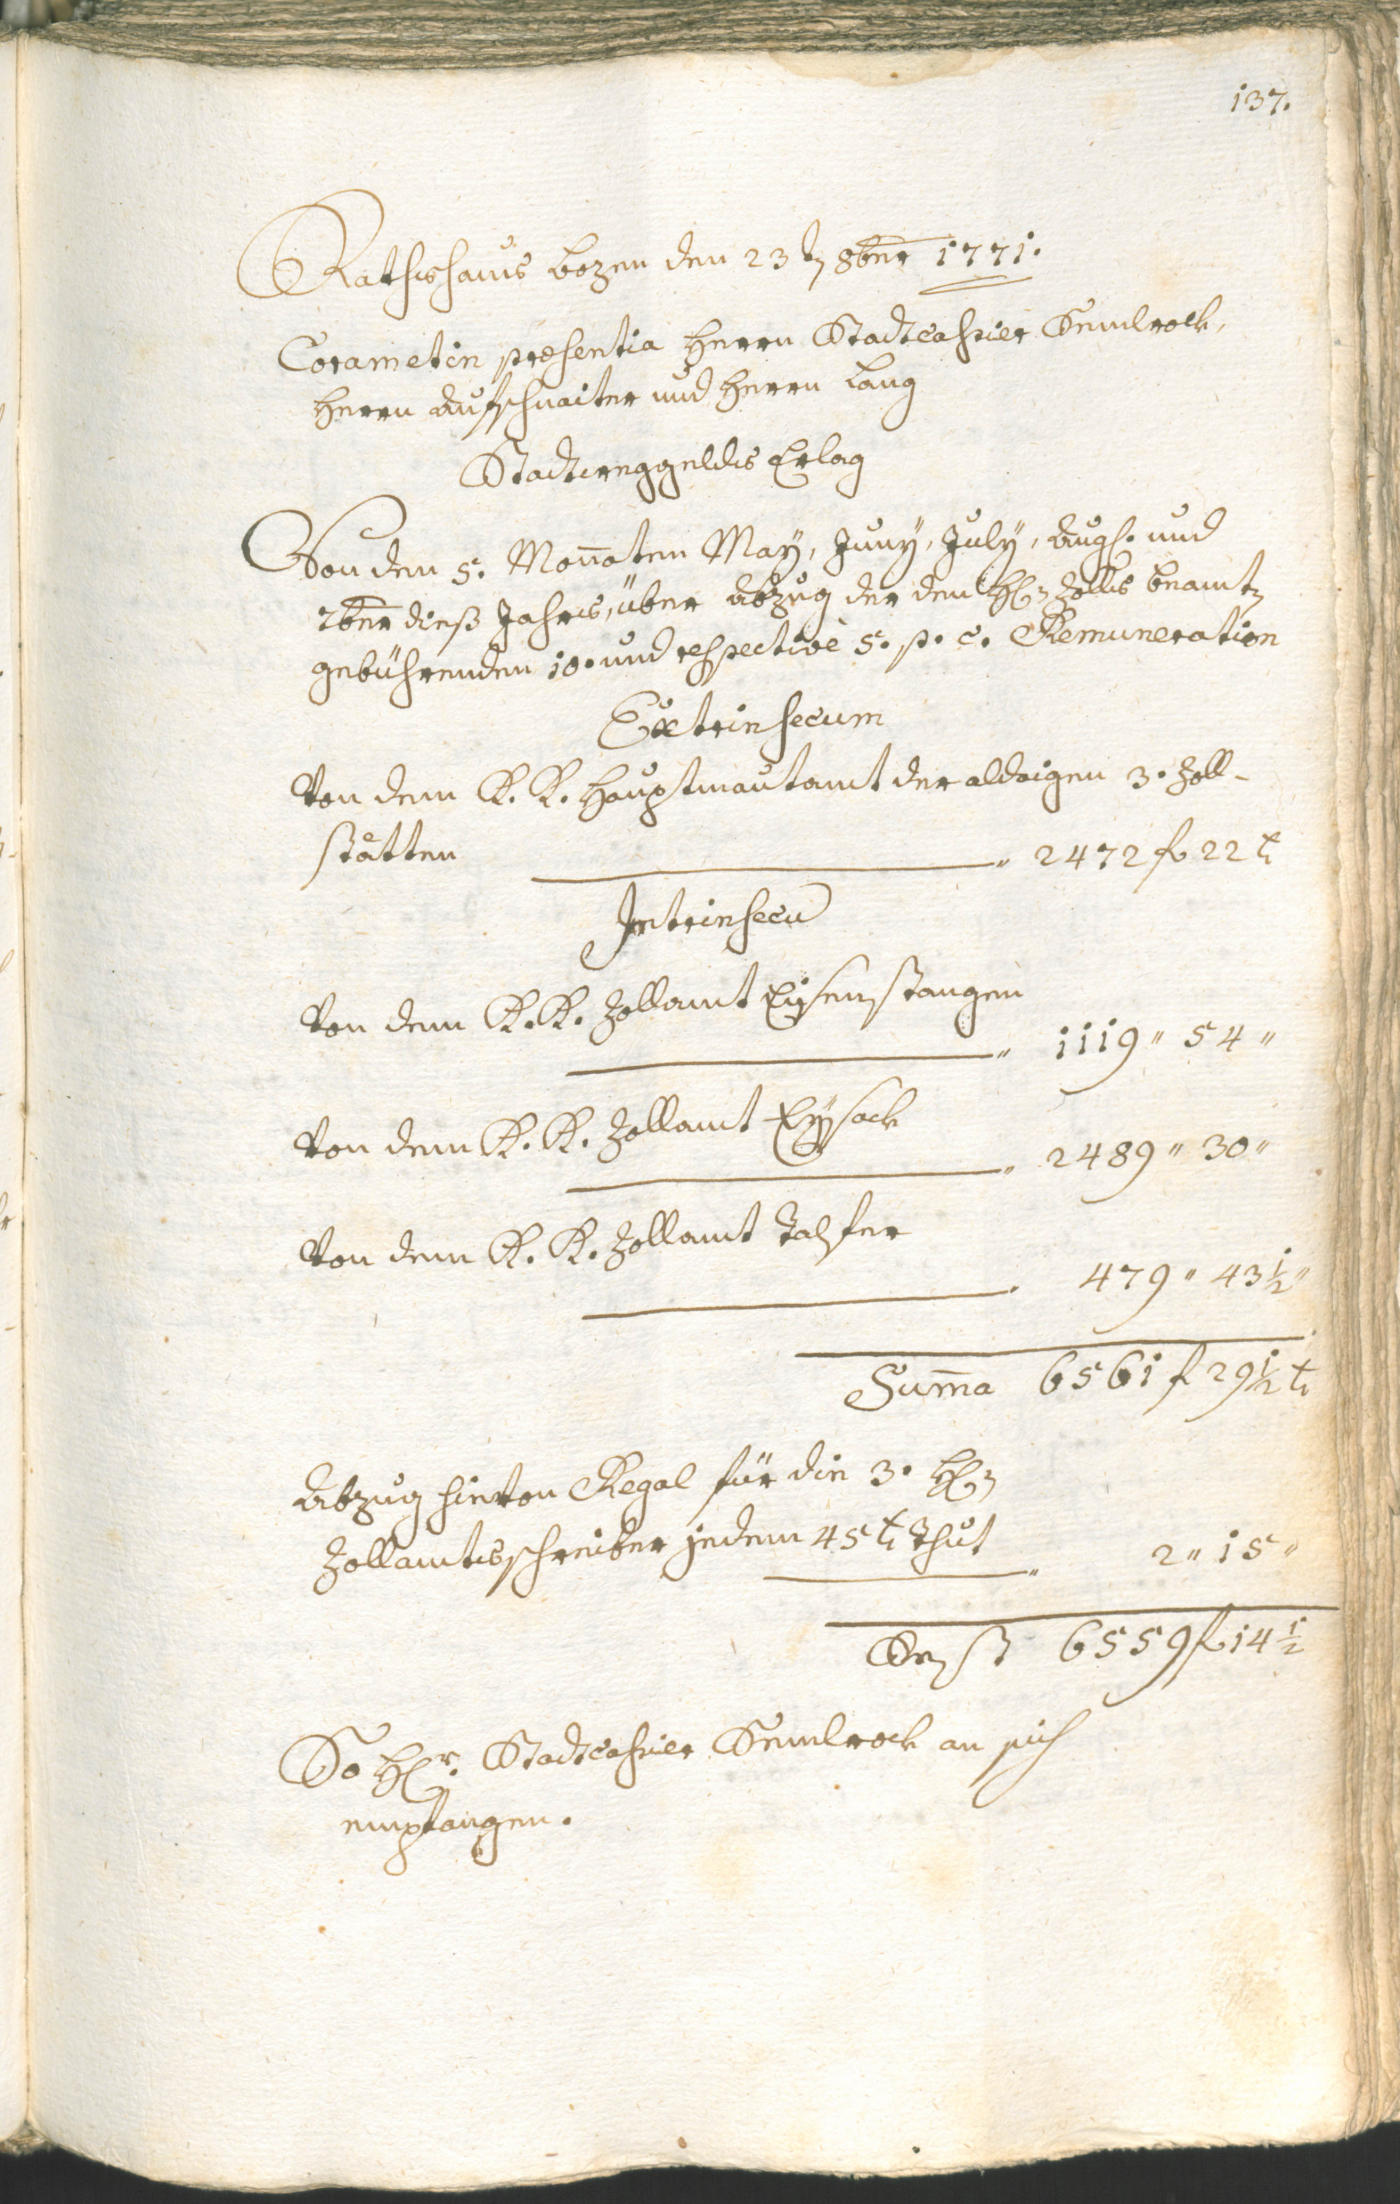 137.
Rathshaus Bozen den 23 t 8ber 1771.
Coram et in præsentia Herrn Stadtcassier Semlrock,
Herrn Aufschnaiter und Herrn Lang
Stadtweggelds Erlag
Von den 5. Monaten May, Juny, July, Augs. und
7ber dieß Jahrs, über Abzug der den H Zolls beamt
gebührenden 10. und respectivè 5. p. c. Remuneration
Extrinsecum
Von dem K. K. Hauptmautamt der aldaigen 3. Zoll-
stätten " 2472 f 22 x
Intrinsecu
Von dem K. K. Zollamt Eisenstangen
" 1119 " 54 "
Von dem K. K. Zollamt Eysack
" 2489 " 30 "
Von dem K. K. Zollamt Talfer
479 " 43 1/2 "
Suma 6561 f 29 1/2 x
Abzug hievon Regal für die 3. H
Zollamtsschreiber jedem 45 x thut
" 2 " 15 "
Rest 6559 f 14 1/2
So Hr. Stadtcassier Semlrock an sich
empfangen.